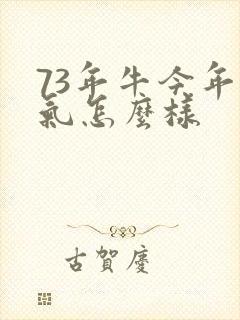 73年牛今年
氣怎麼樣
古賀慶